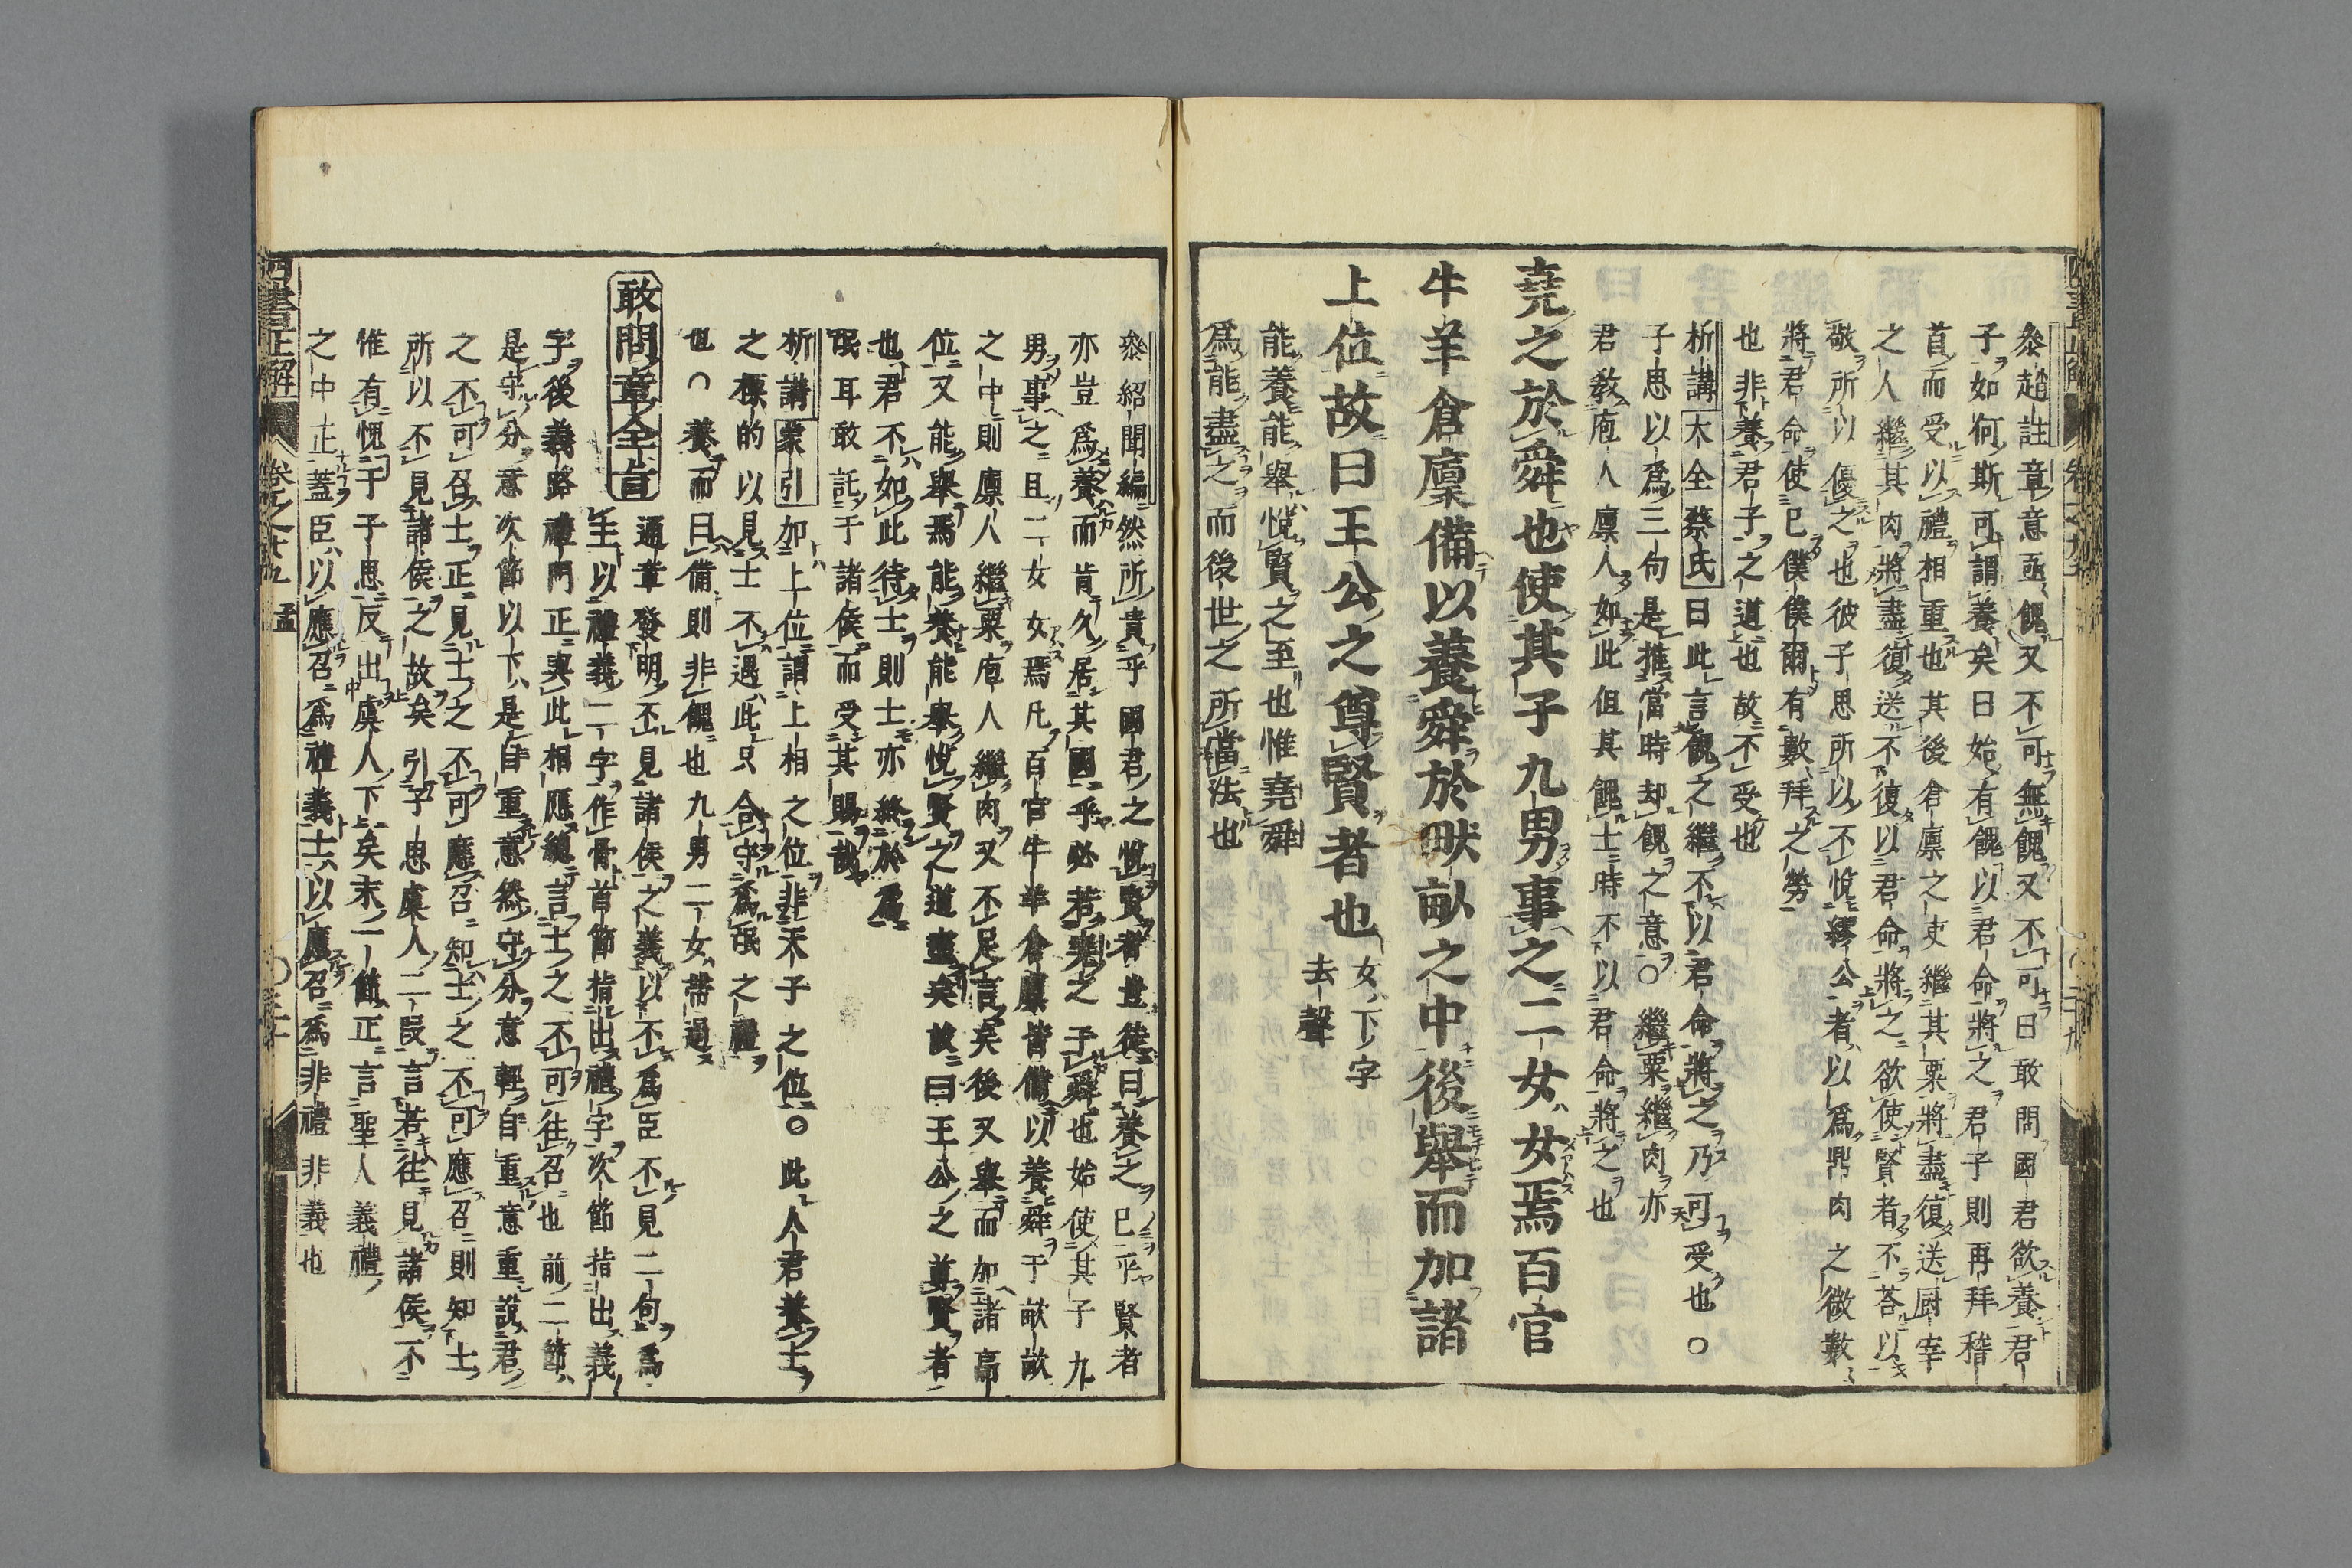 叅趙註章意亟餽又不可無餽又不可曰敢問國君欲養君
子如何斯可謂養矣曰始有餽以君命將之君子則再拜稽
首而受以禮相重也其後倉廪之吏繼其粟將盡復送厨宰
之人繼其肉將盡復送不復以君命將之欲使賢者不荅以
敬所以優之也彼子思所以不悅繆公者以爲鼎肉之微數
將君命使已僕僕爾有數拜之勞
也非養君子之道也故不受也
析講大全蔡氏曰此言餽之繼不以君命將之乃可受也○
子思以爲三句是推當時却餽之意○繼粟繼肉亦
君敎庖人廪人如此但其餽士時不以君命將之也
堯之於舜也使其子九男事之二女女焉百官
牛羊倉廪備以養舜於畎畝之中後舉而加諸
上位故曰王公之尊賢者也女下字
去聲
能養能舉悅賢之至也惟堯舜
爲能盡之而後世之所當法也
叅紹聞編然所貴乎國君之悅賢者豈徒曰養之已乎賢者
亦豈爲養而肯久居其國乎必若堯之于舜也始使其子九
男事之且二女女焉凡百官牛羊倉廪皆備以養舜于畎畝
之中則廪人繼粟庖人繼肉又不足言矣後又舉而加諸高
位又能舉焉能養能舉悅賢之道盡矣故曰王公之尊賢者
也君不如此待士則士亦終於爲
氓耳敢託于諸侯而受其賜哉
析講蒙引加上位謂上相之位非天子之位○此人君養士
之標的以見士不遇此只合守爲氓之禮
也○養而曰備則非餽也九男二女帶過
敢問章全旨
通章發明不見諸侯之義以不爲臣不見二句爲
主以禮義二字作骨首節指出禮字次節指出義
字後義路禮門正與此相應總言士之不可徃召也前二節
是守分意次節以下是自重意然守分意輕自重意重說君
之不可召士正見士之不可應召知士之不可應召則知士
所以不見諸侯之故矣引子思虞人二段言若徃見諸侯不
惟有愧于子思反出虞人下矣末一節正言聖人義禮
之中正蓋臣以應召爲禮義士以應召爲非禮非義也
四書正解
卷之十九
孟